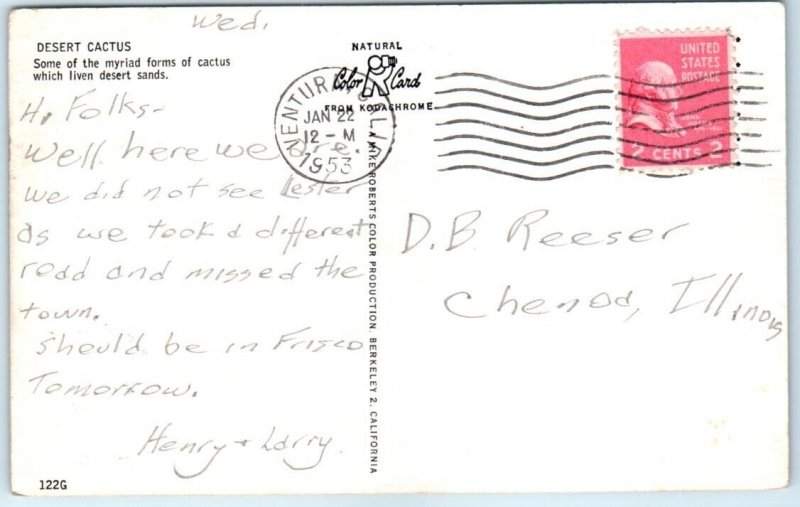 Wed.
DESERT CACTUS
Some of the myriad forms of cactus
which liven desert sands.
Hi Folks-
Well here we are.
We did not see Lester
as we took a different
road and missed the
town.
Should be in Frisco
Tomorrow.
Henry + Larry
122G
NATURAL
Color Card
FROM KODACHROME
MIKE ROBERTS COLOR PRODUCTION. BERKELEY 2. CALIFORNIA
VENTURA CALIF.
JAN 22
12-M
1953
UNITED
STATES
POSTAGE
2 CENTS 2
D.B Reeser
Chenoa, Illinois